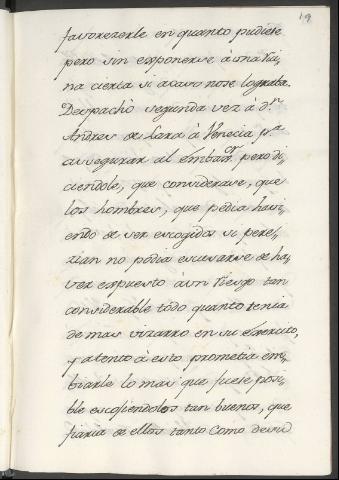 19
favorezerle en quanto pudiese
pero sin exponerse à una rui,
na cierta si acaso nose lograba.
Despachò segunda vez à dⁿ
Andres de Lera à Venecia pʳᵃ
assegurar al Embaxᵒʳ pero di,
ciendole, que considerase, que
los hombres, que pedia havi,
endo de ser escogidos si pere,
zian no podia escusarse de ha,
ver expuesto à un riesgo tan
considerable todo quanto tenia
de mas vizarro en su Exercito,
y atento à esto prometia em,
biarle lo mas que fuese posi,
ble escogiendolos tan buenos, que
fiaria de ellos tanto como de su